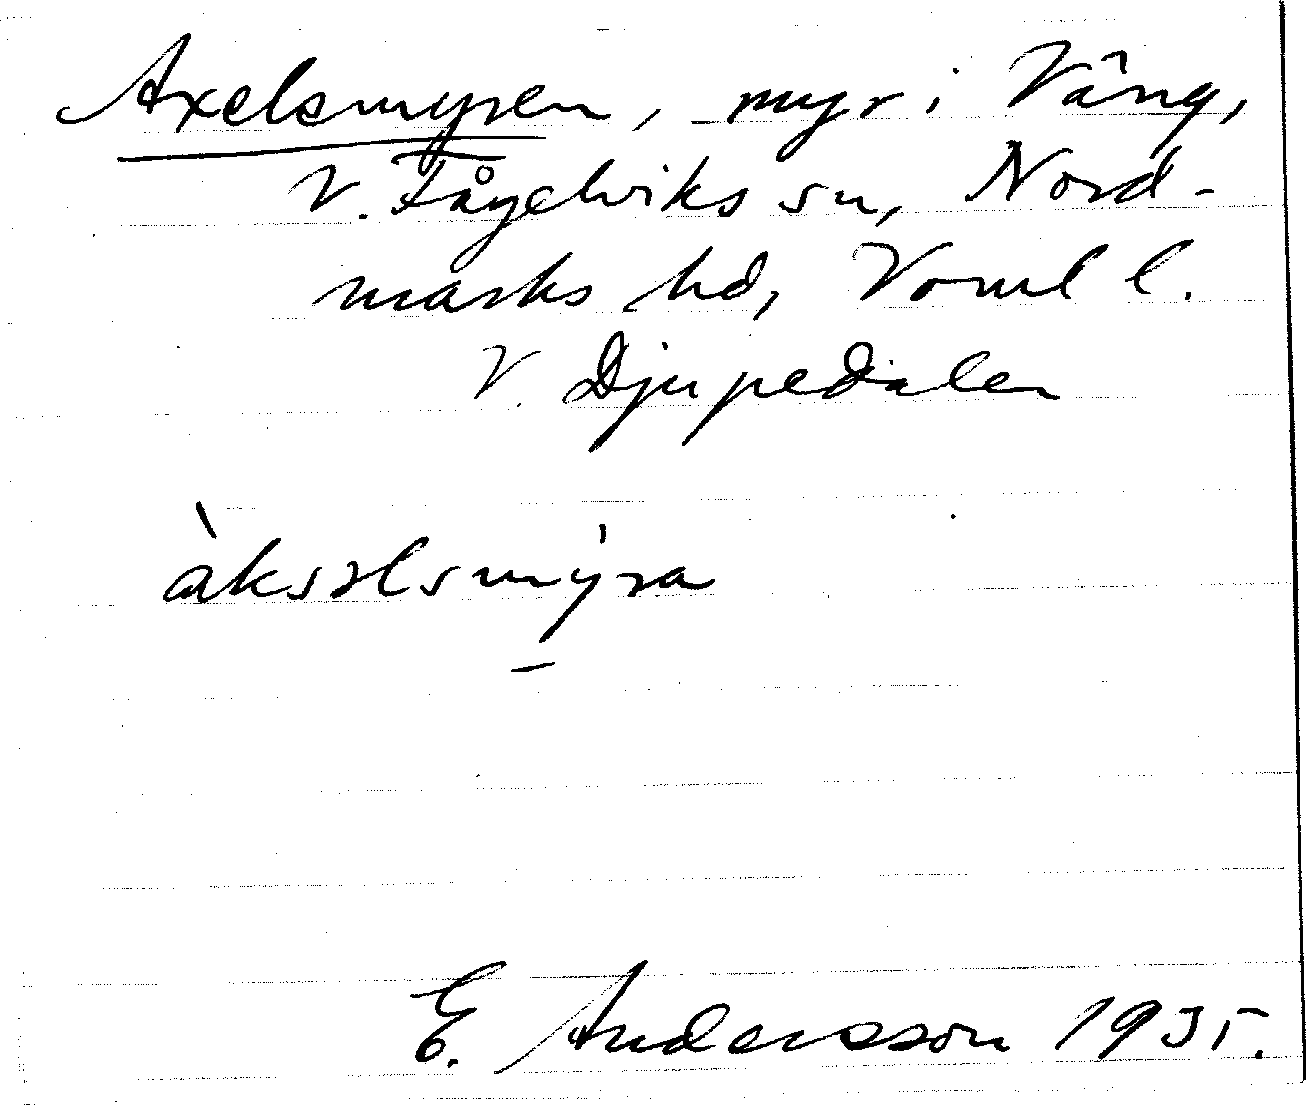 Axelsmyren, myr i Vång,
V. Fågelviks sn, Nord-
marks hd, Värml l.
V. Djupedalen
àksəlsmy̠ra
E. Andersson 1935.